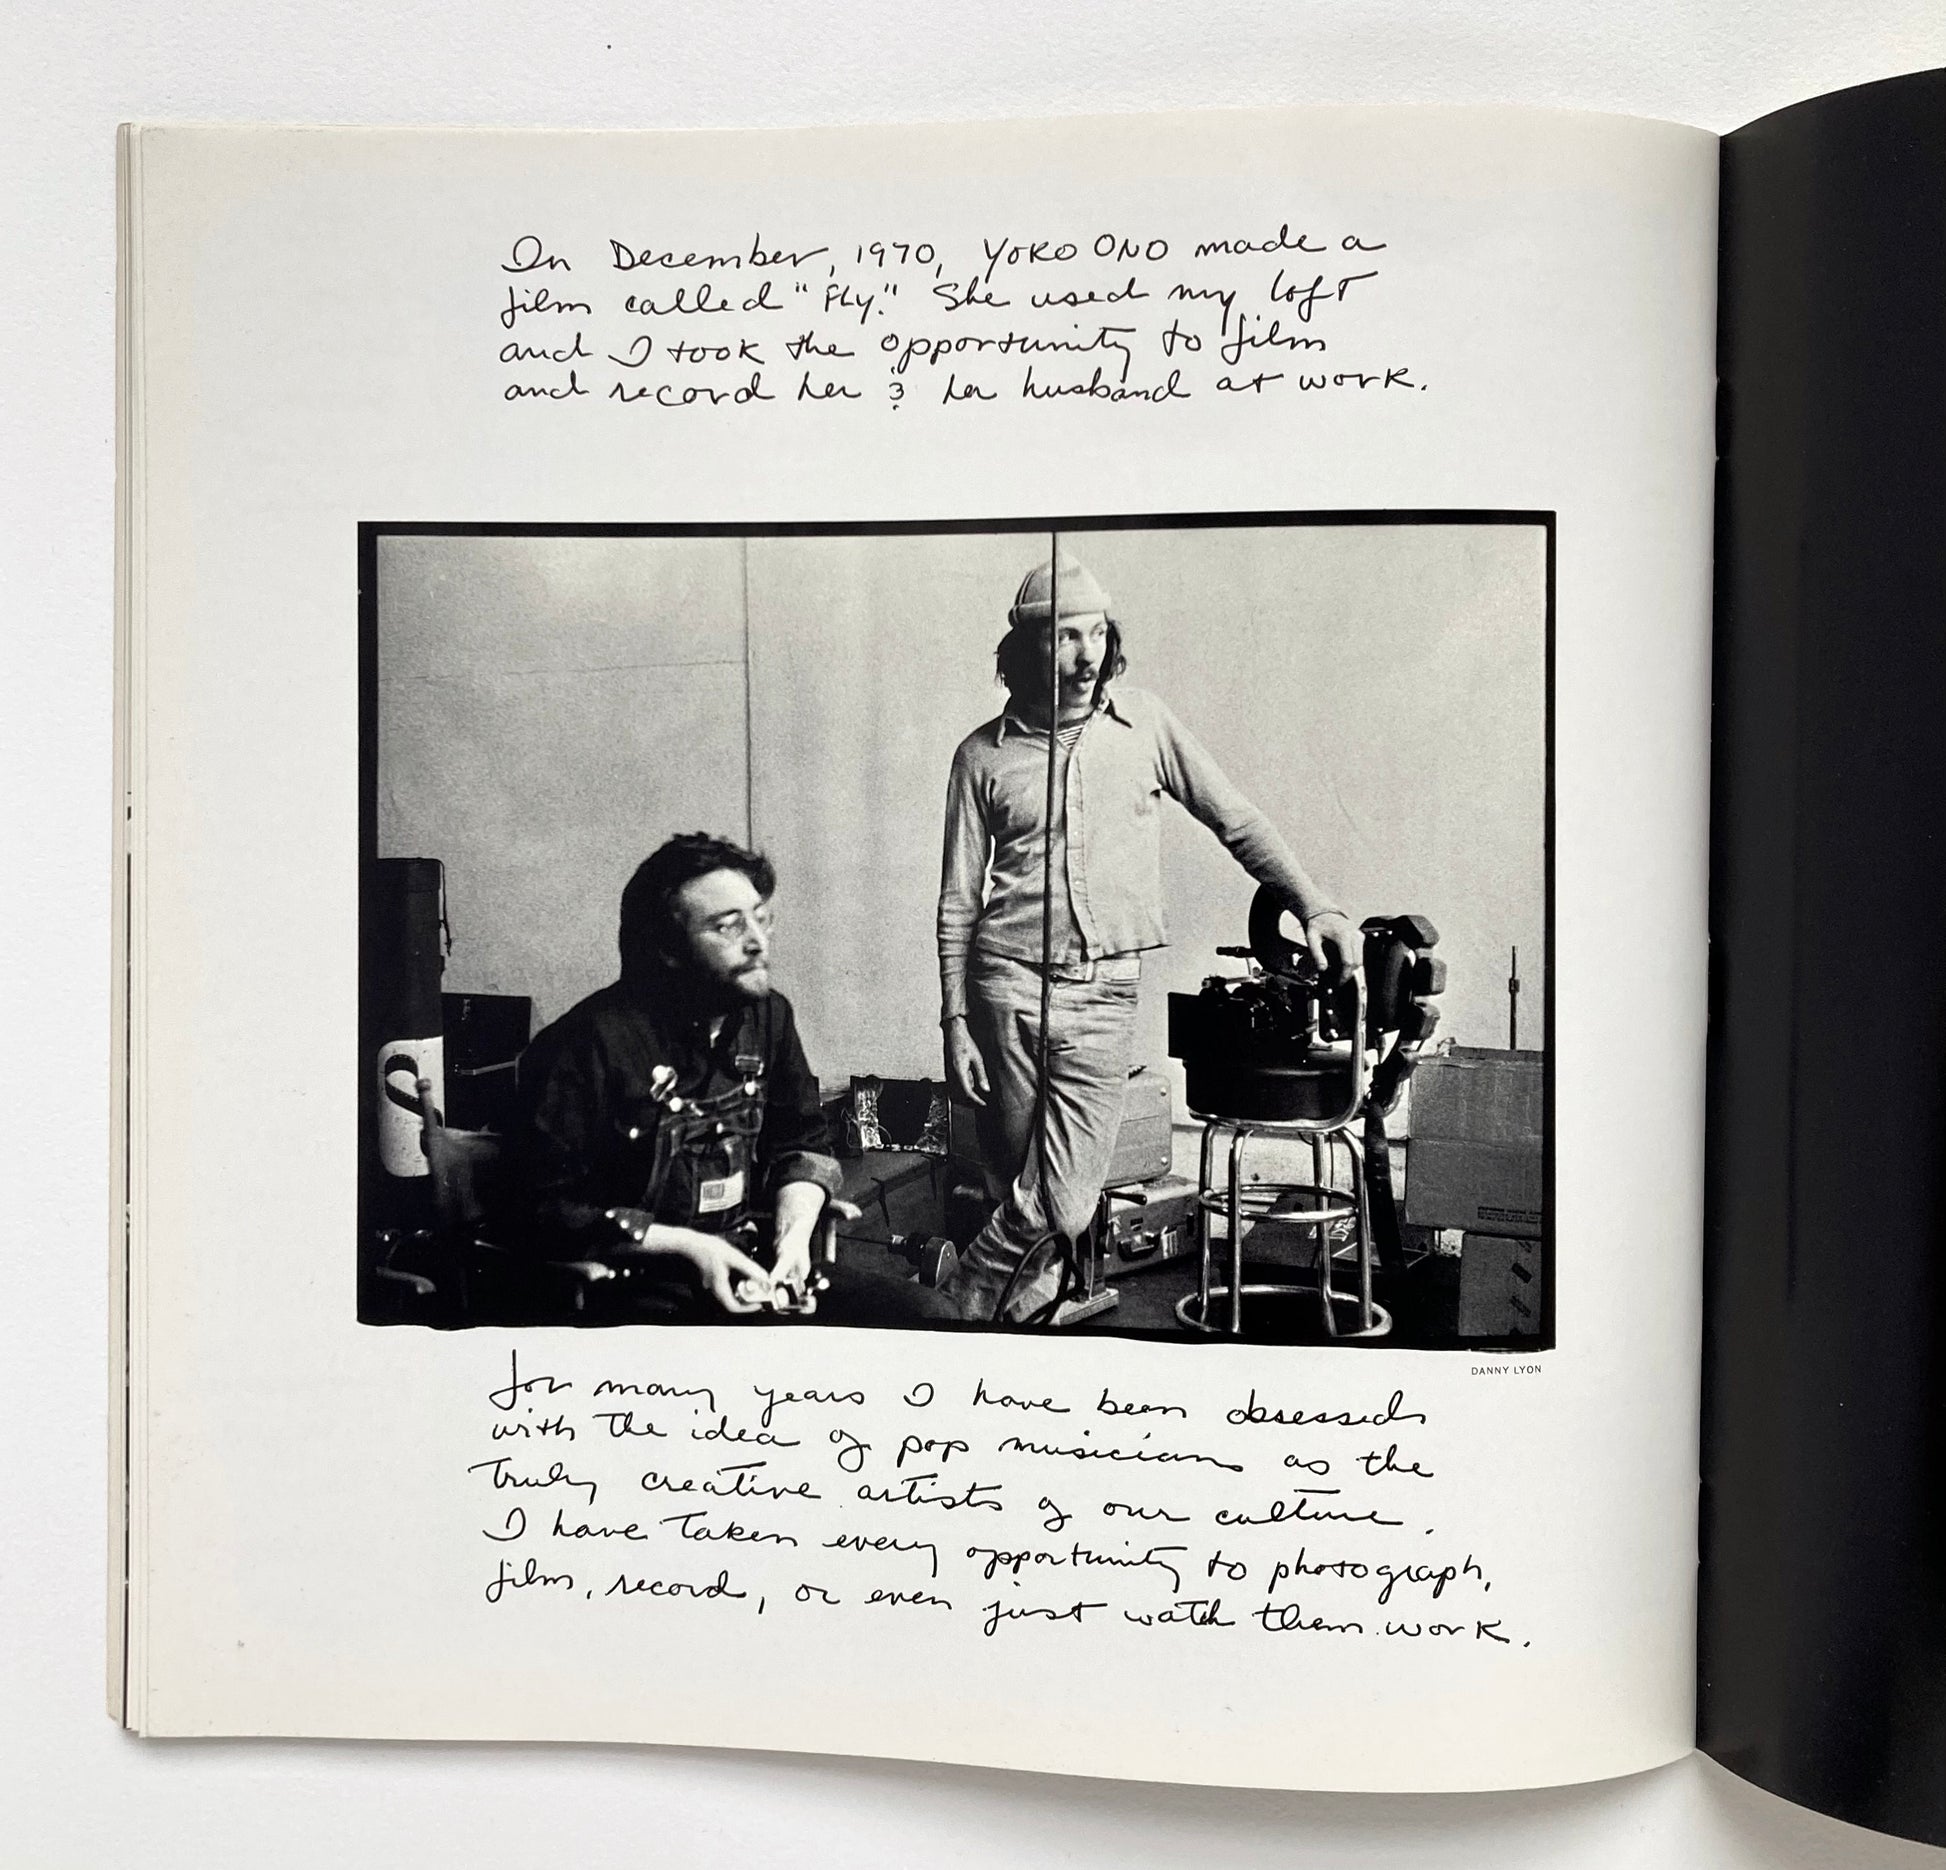 In December, 1970, YOKO ONO made a
film called "FLY." She used my loft
and I took the opportunity to film
and record her & her husband at work.
DANNY LYON
for many years I have been obsessed
with the idea of pop musicians as the
truly creative artists of our culture.
I have taken every opportunity to photograph,
film, record, or even just watch them work.